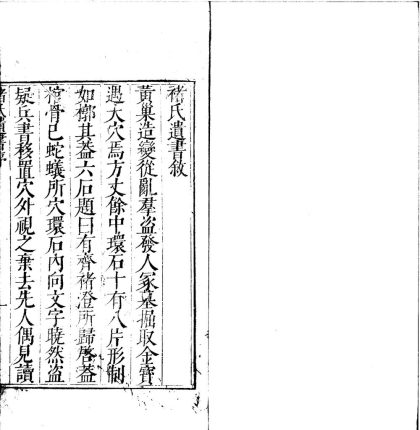 褚氏遺書敘
黃巢造變從亂羣盜發人冢墓掘取金寶
遇大穴焉方丈餘中環石十有八片形制
如槨其葢六石題曰有齊褚澄所歸啓葢
棺骨已蛇蟻所穴環石內向文字曉然盜
疑兵書移置穴外視之棄去先人偶見讀